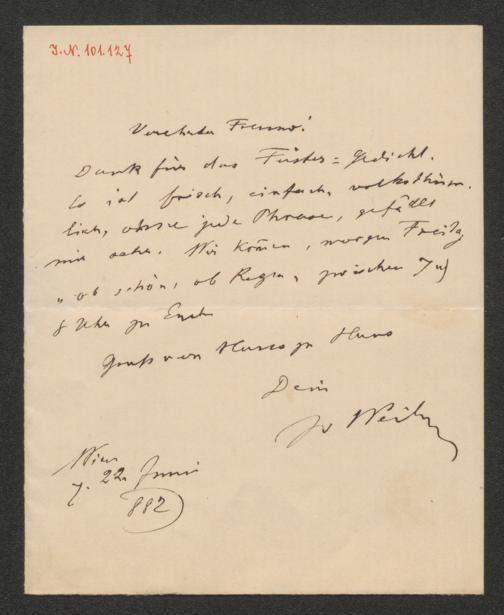 I.N. 101.127
Verehrter Freund!
Dank für das Fürster = Gedicht.
Es ist frisch, einfach, volksthüm-
lich, ohne jede Phrase, gefällt
mir sehr. Wir kommen, morgen Freitag
„ob schön, ob Regen, zwischen 7 u
8 Uhr zu Euch
Gruß von Haus zu Haus
Dein
Wien
22 Juni
882